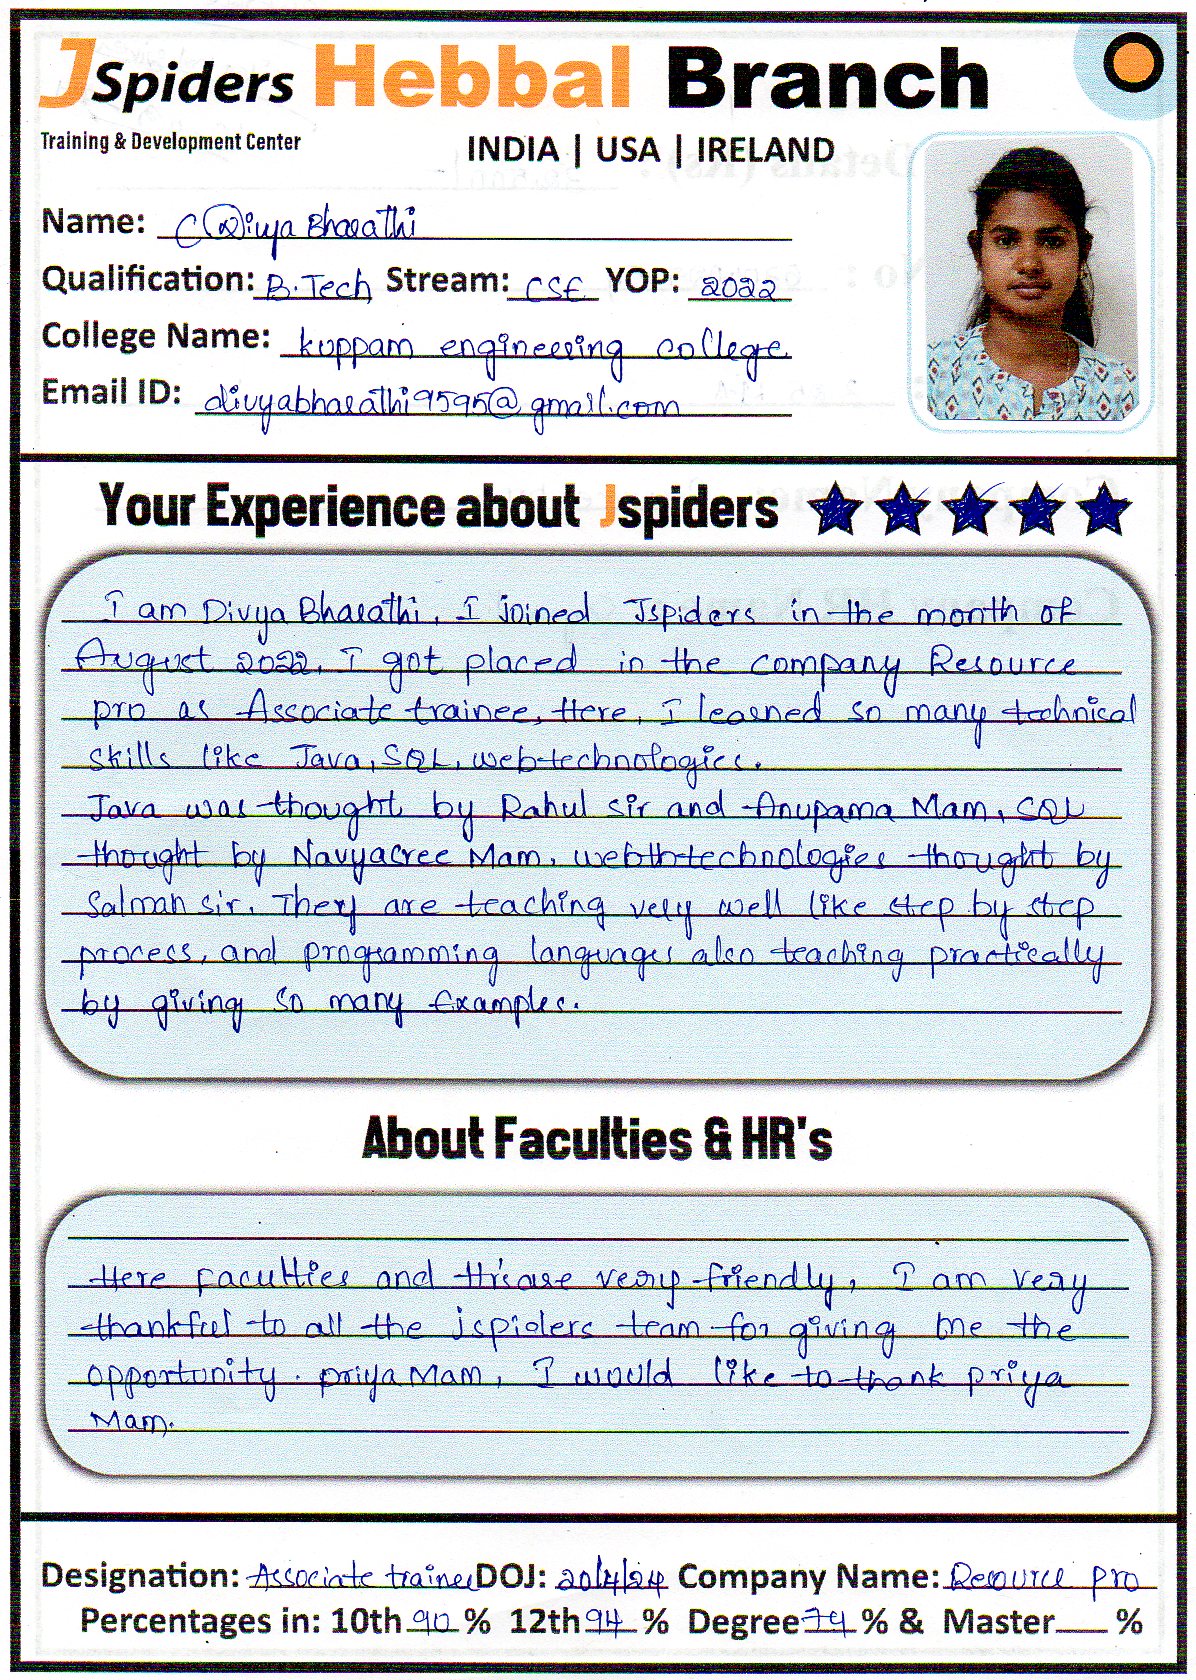 JSpiders Hebbal Branch
Training & Development Center
INDIA | USA | IRELAND
Name: C Divya Bharathi
Qualification: B.Tech Stream: CSE YOP: 2022
College Name: kuppam engineering college
Email ID: divyabharathi9595@gmail.com
Your Experience about Jspiders
I am Divya Bharathi, I joined Jspiders in the month of
August 2022, I got placed in the company Resource
pro as Associate trainee, Here, I learned so many technical
skills like Java, SQL, web-technologies.
Java was thought by Rahul sir and Anupama Mam, SQL
thought by Navyasree Mam, webth-technologies thought by
Salman sir. They are teaching very well like step by step
process, and programming languages also teaching practically
by giving so many Examples.
About Faculties & HR's
Here faculties and Hr's are very friendly, I am very
thankful to all the jspiders team for giving me the
opportunity. priya Mam, I would like to thank priya
Mam.
Designation: Associate trainee DOJ: 20/4/24 Company Name: Resource pro
Percentages in: 10th 90 % 12th 94 % Degree 79 % & Master %